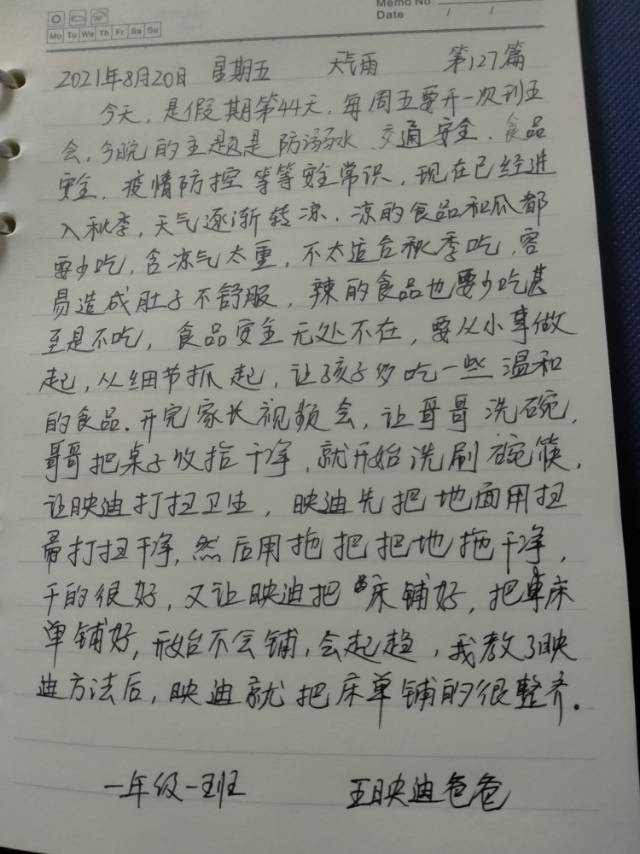 Memo No.
Date / /
Mo Tu We Th Fr Sa Su
2021年8月20日 星期五 天气雨 第127篇
今天,是假期第44天,每周五要开一次到五
会,今晚的主题是防溺水、交通安全、食品
安全、疫情防控等等安全常识,现在已经进
入秋季,天气逐渐转凉,凉的食品和瓜都
要少吃,含凉气太重,不太适合秋季吃,容
易造成肚子不舒服,辣的食品也要少吃甚
至是不吃,食品安全无处不在,要从小事做
起,从细节抓起,让孩子多吃一些温和
的食品.开完家长视频会,让哥哥洗碗,
哥哥把桌子收拾干净,就开始洗刷碗筷,
让映迪打扫卫生,映迪先把地面用扫
帚打扫干净,然后用拖把把地拖干净,
干的很好,又让映迪把床铺好,把床
单铺好,开始不会铺,会起趋,我教了映
迪方法后,映迪就把床单铺的很整齐.
一年级一班 王映迪爸爸